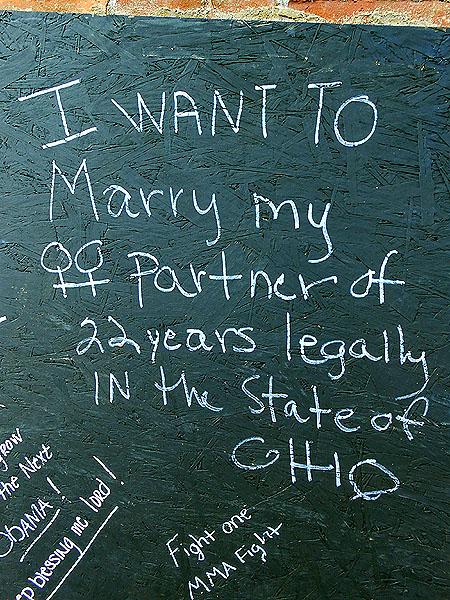 I WANT TO
Marry my
⚢ Partner of
22 years legally
IN the State of
OHIO
the Next
OBAMA!
blessing me lord!
Fight one
MMA Fight